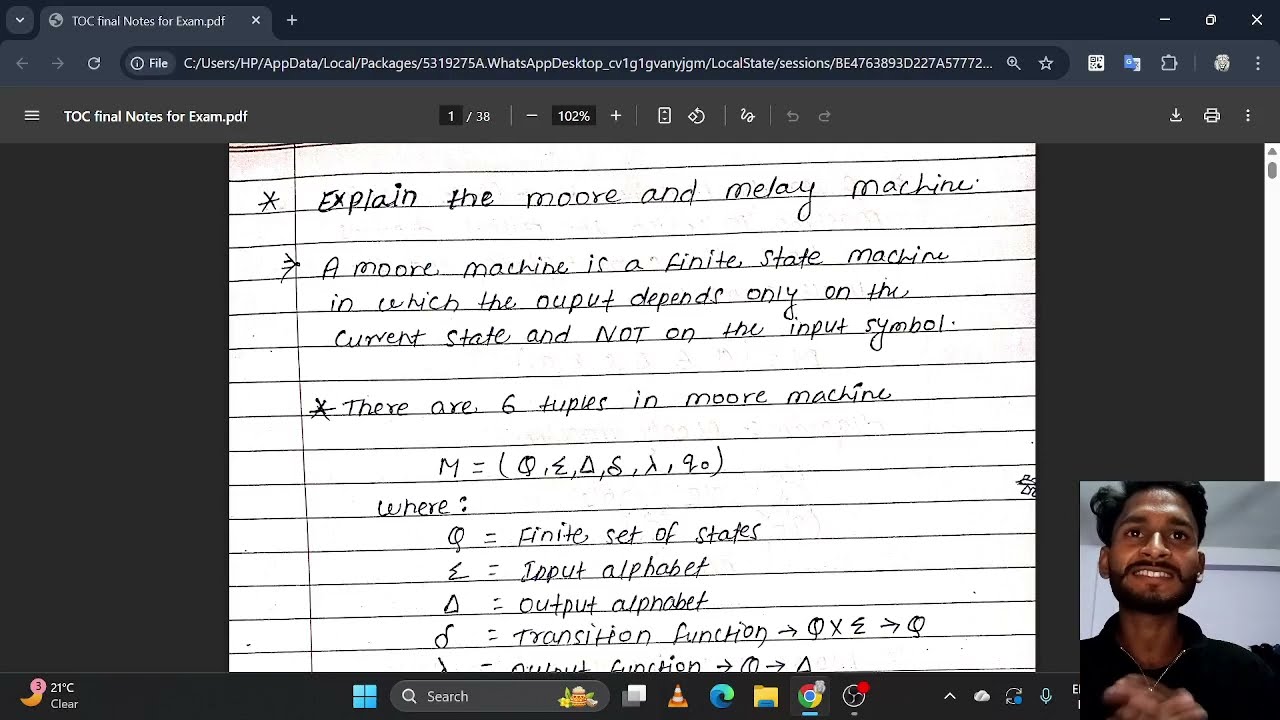 TOC final Notes for Exam.pdf
File
C:/Users/HP/AppData/Local/Packages/5319275A.WhatsAppDesktop_cv1g1gvanyjgm/LocalState/sessions/BE4763893D227A57772...
TOC final Notes for Exam.pdf
1 / 38
102%
* Explain the moore and melay machine.
⇒ A moore machine is a finite state machine
in which the ouput depends only on the
current state and NOT on the input symbol.
* There are 6 tuples in moore machine
M = (Q, Σ, Δ, δ, λ, q₀)
where:
Q = Finite set of states
Σ = Input alphabet
Δ = Output alphabet
δ = Transition function → Q X Σ → Q
λ = output function → Q → Δ
3
21°C
Clear
Search